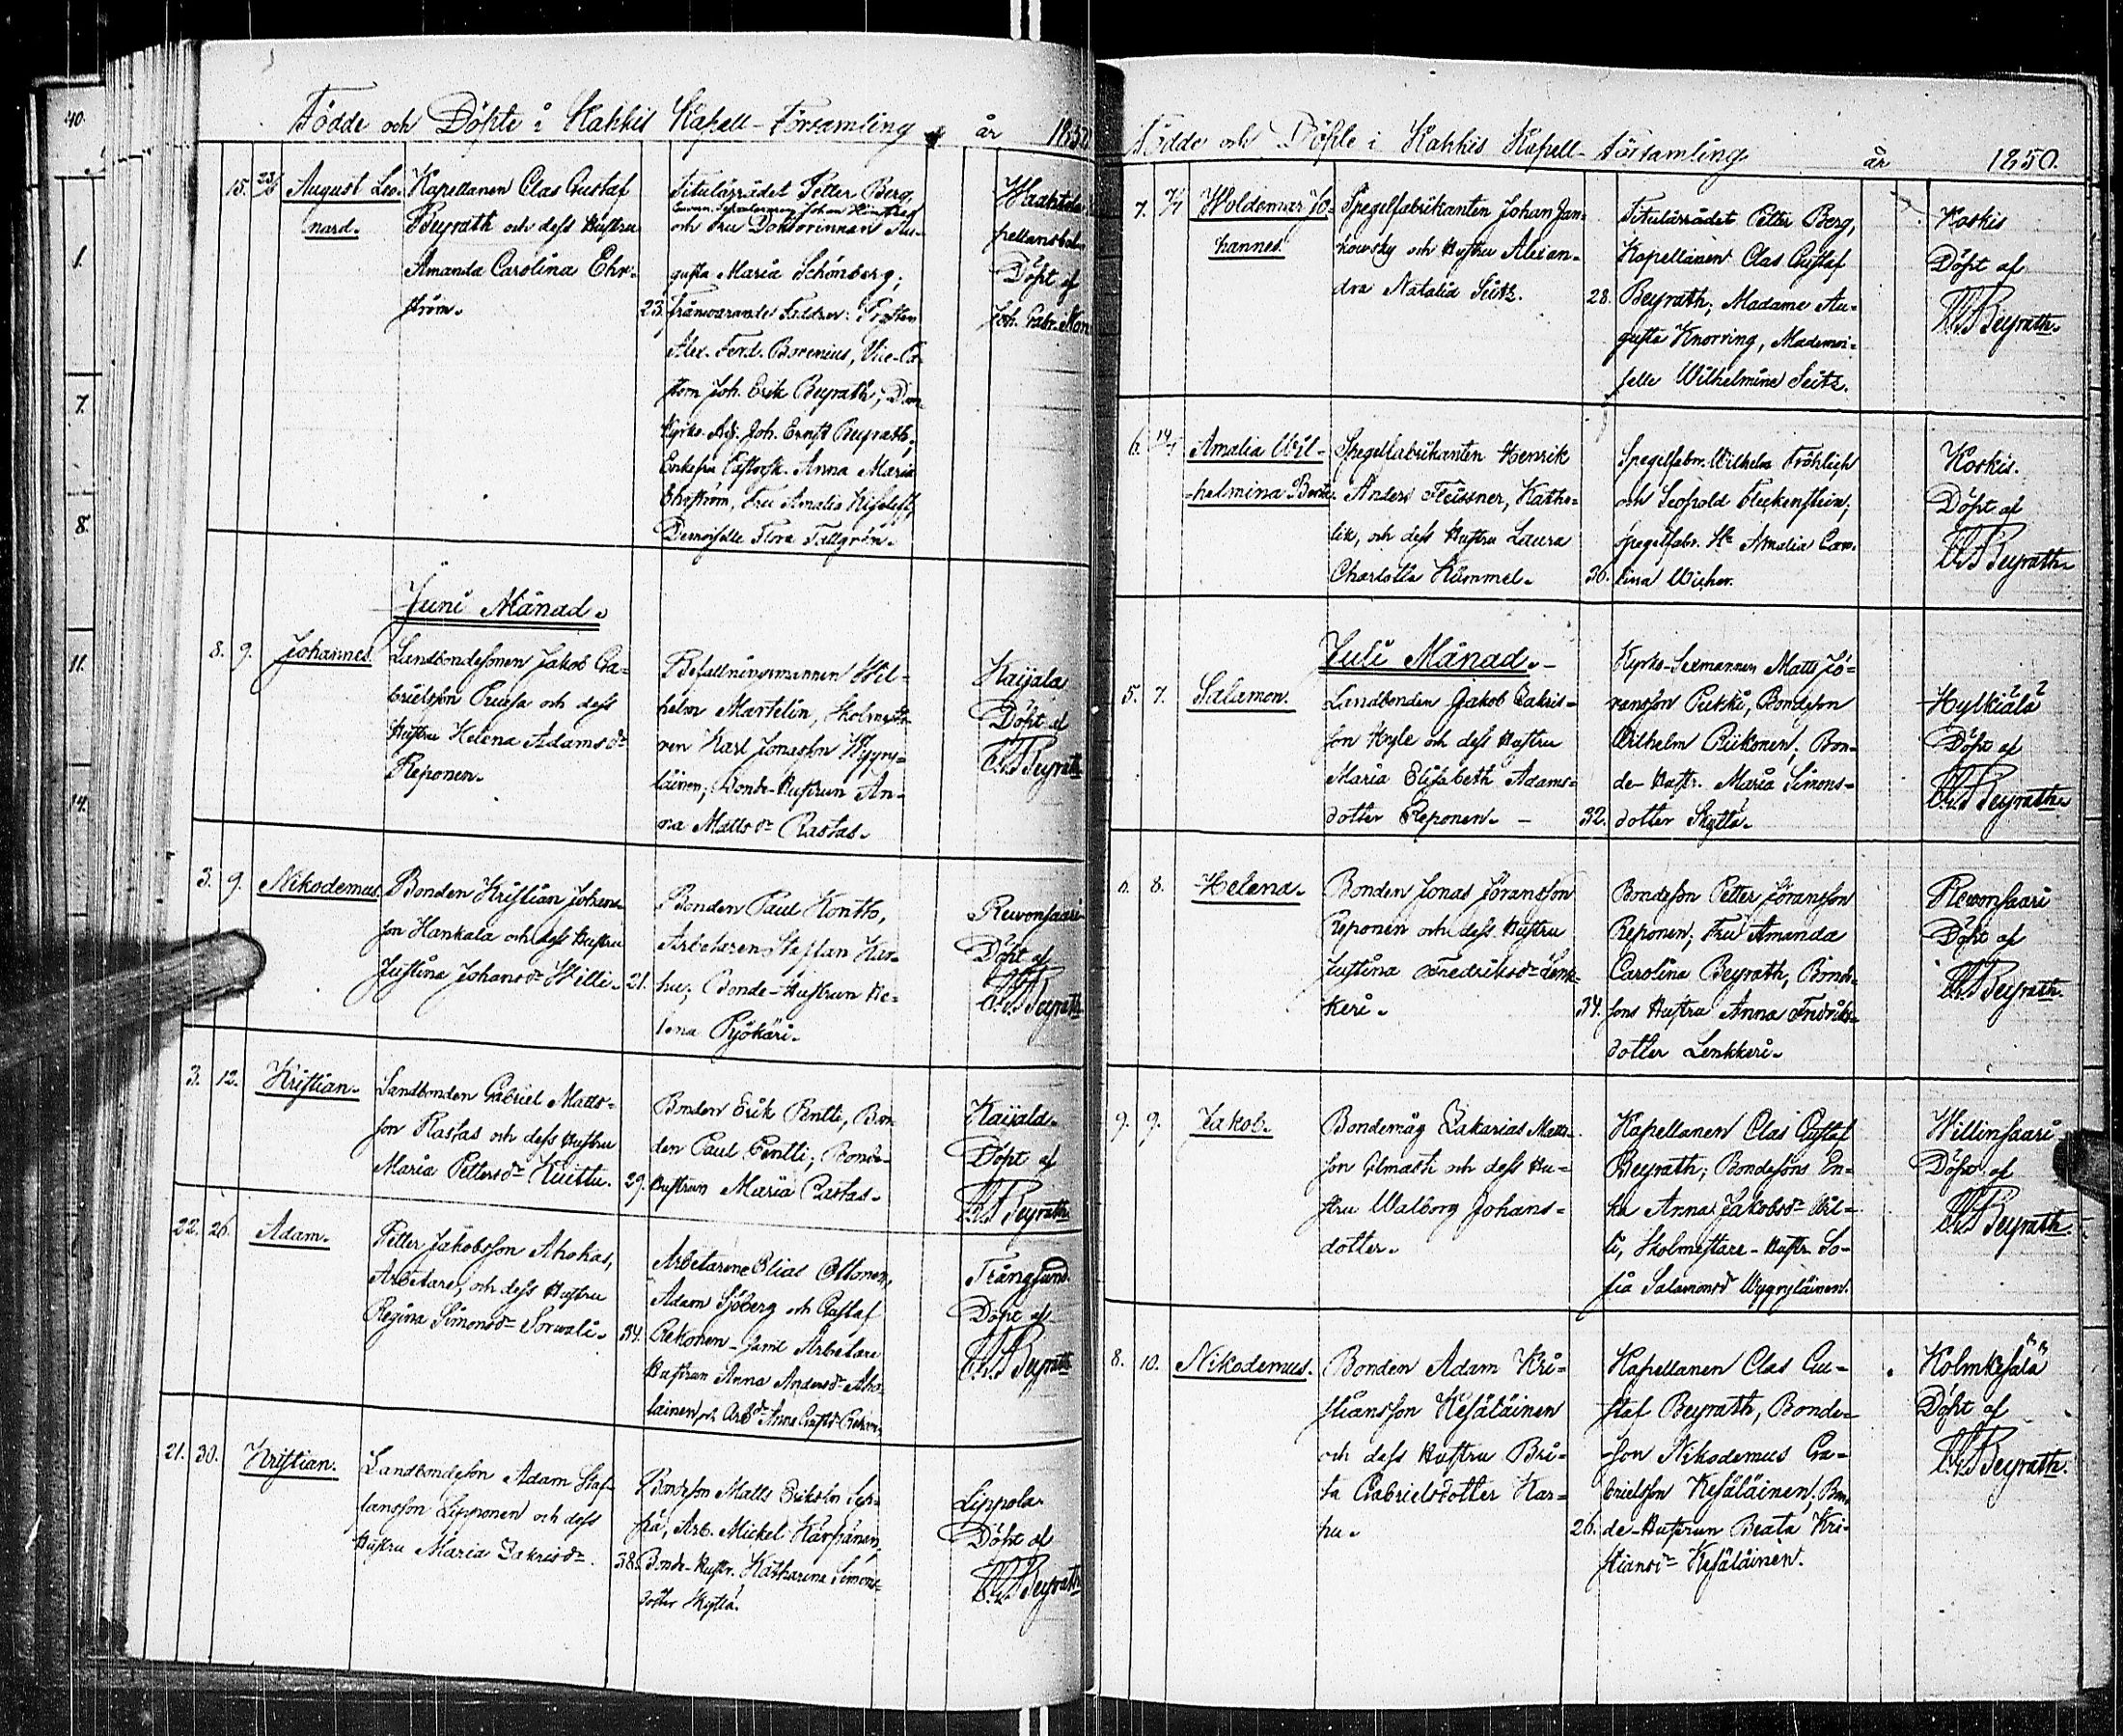 40.
1.
7.
8.
11.
14.
Födde och Döpte i Kakkis Kapell-Församling år 1850
15. 23/6 August Leo-
nard.
Kapellanen Clas Gustaf
Beyrath och dess Hustru
Amanda Carolina Ehr-
ström.
23.
Titulärrådet Petter Berg,
och Fru Doktorinnan Au-
gusta Maria Schönberg;
frånvarande Faddrar: Prosten
Alex. Ferd. Borenius, Vice-Pa-
storn Joh. Erik Beyrath, Dom-
kyrko-Adj. Joh. Ernst Beyrath,
Enkefru Anna Maria
Ehrström, Fru Amalia
Demoiselle Flora Tallgrén.
Döpt af
Joh. Gabr.
Juni Månad.
8. 9. Johannes
Landbondesonen Jakob Ga-
brielsson Pruusa och dess
Hustru Helena Adamsdr
Reponen.
Befallningsmannen Wil-
helm Martelin, Skolmästa-
ren Karl Jonasson Wyyry-
läinen; Bonde-Hustrun An-
na Mattsdr Rastas.
Kaijala
Döpt af
C.G. Beyrath
3. 9. Nikodemus.
Bonden Kristian Johans-
son Hankala och dess Hustru
Justina Johansdr Wille.
21.
Bonden Paul Kontto,
Arbetaren Staffan Kar-
hu; Bonde-Hustrun He-
lena Pyökäri.
Rewonsaari
Döpt af
C.G. Beyrath
3. 12. Kristian.
Landbonden Gabriel Matts-
son Rastas och dess Hustru
Maria Pettersdr Kuittu.
29.
Bonden Erik Pentti, Bon-
den Paul Pentti; Bonde-
Hustrun Maria Rastas.
Kaijala.
Döpt af
C.G. Beyrath
22. 26. Adam.
Petter Jakobsson Ahokas,
Arbetare, och dess Hustru
Regina Simonsdr Sorwali.
34.
Arbetarene Elias Ottonen,
Adam Sjöberg och Gustaf
Rekonen samt Arbetare
Hustrun Anna Andersdr Aho-
lainen och Anna
Trångsund
Döpt af
C.G. Beyrath
21. 30. Kristian.
Landbondeson Adam Staf-
fansson Lipponen och dess
Hustru Maria Zakrisdr.
38.
Bondeson Matts Eriksson Sep-
pä, Arb. Mickel Kärpänen,
Bonde-Hustr. Katharina Simons-
dotter Skyttä.
Lippola.
Döpt af
C.G. Beyrath
Födde och Döpte i Kakkis Kapell-Församling år 1850.
7. 7/7 Woldemar Jo-
hannes.
Spegelfabrikanten Johan Jan-
kowsky och Hustru Alexan-
dra Natalia Seitz.
28.
Titulärrådet Petter Berg,
Kapellanen Clas Gustaf
Beyrath; Madame Au-
gusta Knorring, Mademoi-
selle Wilhelmine Seitz.
Koskis
Döpt af
C.G. Beyrath.
6. 14/7 Amalia Wil-
helmina Berta.
Spegelfabrikanten Henrik
Anders Fleissner, Katho-
lik, och dess Hustru Laura
Charlotta Kümmel.
36.
Spegelfabr. Wilhelm Fröhlich
och Leopold Fleckenstein;
Spegelfabr. Hu Amalia Caro-
lina
Koskis.
Döpt af
C.G. Beyrath.
Juli Månad.
5. 7. Salamon.
Landbonden Jakob Zakris-
son Kyle och dess Hustru
Maria Elisabeth Adams-
dotter Reponen.
32.
Kyrko-Sexmannen Matts Jö-
ransson Pukki, Bondeson
Wilhelm Riikonen; Bon-
de-Hustr. Maria Simons-
dotter Skyttä.
Hylkiälä
Döpt af
C.G. Beyrath.
6. 8. Helena.
Bonden Jonas Jöransson
Reponen och dess Hustru
Justina Fredriksdr Lenk-
keri.
34.
Bondeson Petter Jöransson
Reponen; Fru Amanda
Carolina Beyrath, Bonde-
sons Hustru Anna Fredriks-
dotter Lenkkeri.
Rewonsaari
Döpt af
C.G. Beyrath.
9. 9. Jakob.
Bondemåg Zakarias Matts-
son Ilmasti och dess Hu-
stru Walborg Johans-
dotter.
Kapellanen Clas Gustaf
Beyrath; Bondesons En-
ka Anna Jakobsdr Wil-
li, Skolmästare-Hustr. So-
fia Salamonsdr Wyyryläinen.
Willinsaari
Döpt af
C.G. Beyrath.
8. 10. Nikodemus.
Bonden Adam Kri-
stiansson Kesäläinen
och dess Hustru Bri-
ta Gabrielsdotter Kar-
hu.
26.
Kapellanen Clas Gu-
staf Beyrath, Bonde-
son Nikodemus Ga-
brielsson Kesäläinen; Bon-
de-Hustrun Beata Kri-
stiansdr Kesäläinen.
Kolmikesälä
Döpt af
C.G. Beyrath.